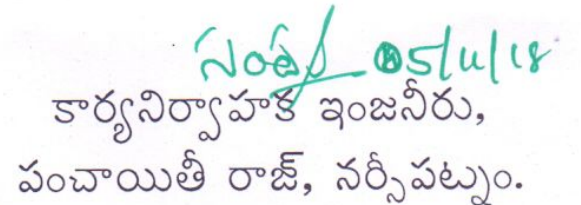 05/11/18
కార్యనిర్వాహక ఇంజనీరు,
పంచాయితీ రాజ్, నర్సీపట్నం.